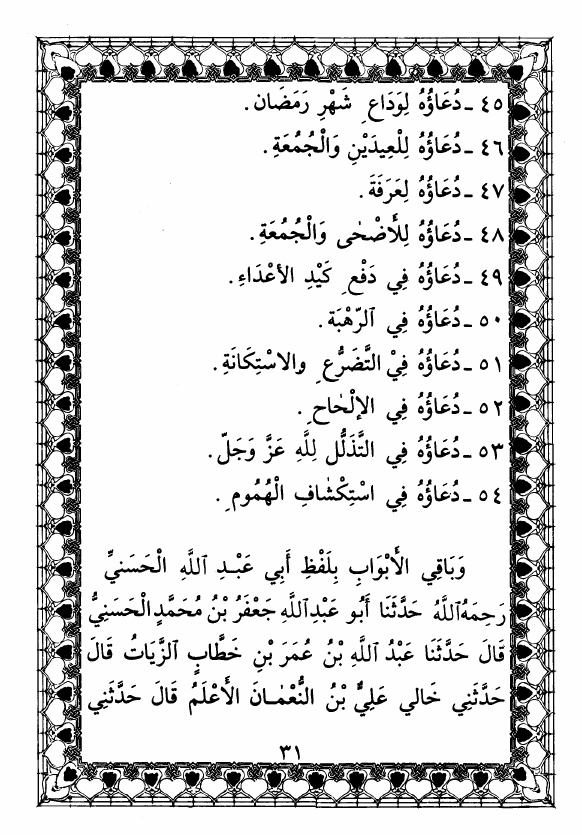 ٤٥ ـ دُعَاؤُهُ لِوَدَاعِ شَهْرِ رَمَضَان .
٤٦ ـ دُعَاؤُهُ لِلْعِيدَيْنِ وَالْجُمُعَةِ .
٤٧ ـ دُعَاؤُهُ لِعَرَفَةَ .
٤٨ ـ دُعَاؤُهُ لِلأَضْحٰى وَالْجُمُعَةِ .
٤٩ ـ دُعَاؤُهُ فِي دَفْعِ كَيْدِ الأعْدَاءِ .
٥٠ ـ دُعَاؤُهُ فِي ٱلرّهْبَة .
٥١ ـ دُعَاؤُهُ فِيْ التَّضَرُّعِ والاسْتِكَانَةِ .
٥٢ ـ دُعَاؤُهُ فِي الإلْحٰاحِ .
٥٣ ـ دُعَاؤُهُ فِي التَّذَلُّل لِلَّهِ عَزَّ وَجَلّ .
٥٤ ـ دُعَاؤُهُ فِي اسْتِكْشٰافِ الْهُمُومِ .
وَبَاقِي الأَبْوَابِ بِلَفْظِ أَبِي عَبْـدِ ٱللَّهِ الْحَسَنيِّ
رَحِمَهُ ٱللَّهُ حَدَّثَنَا أَبُو عَبْدِ ٱللَّهِ جَعْفَرُ بْنُ مُحَمَّدٍ الْحَسَنِيُّ
قَالَ حَدَّثَنَا عَبْدُ ٱللَّهِ بْنُ عُمَرَ بْنِ خَطَّابٍ ٱلزَّيَاتُ قَالَ
حَدَّثَنِي خَالي عَلِيُّ بْنُ النُّعْمٰـانَ الأَعْلَمُ قَالَ حَدَّثَنِي
٣١